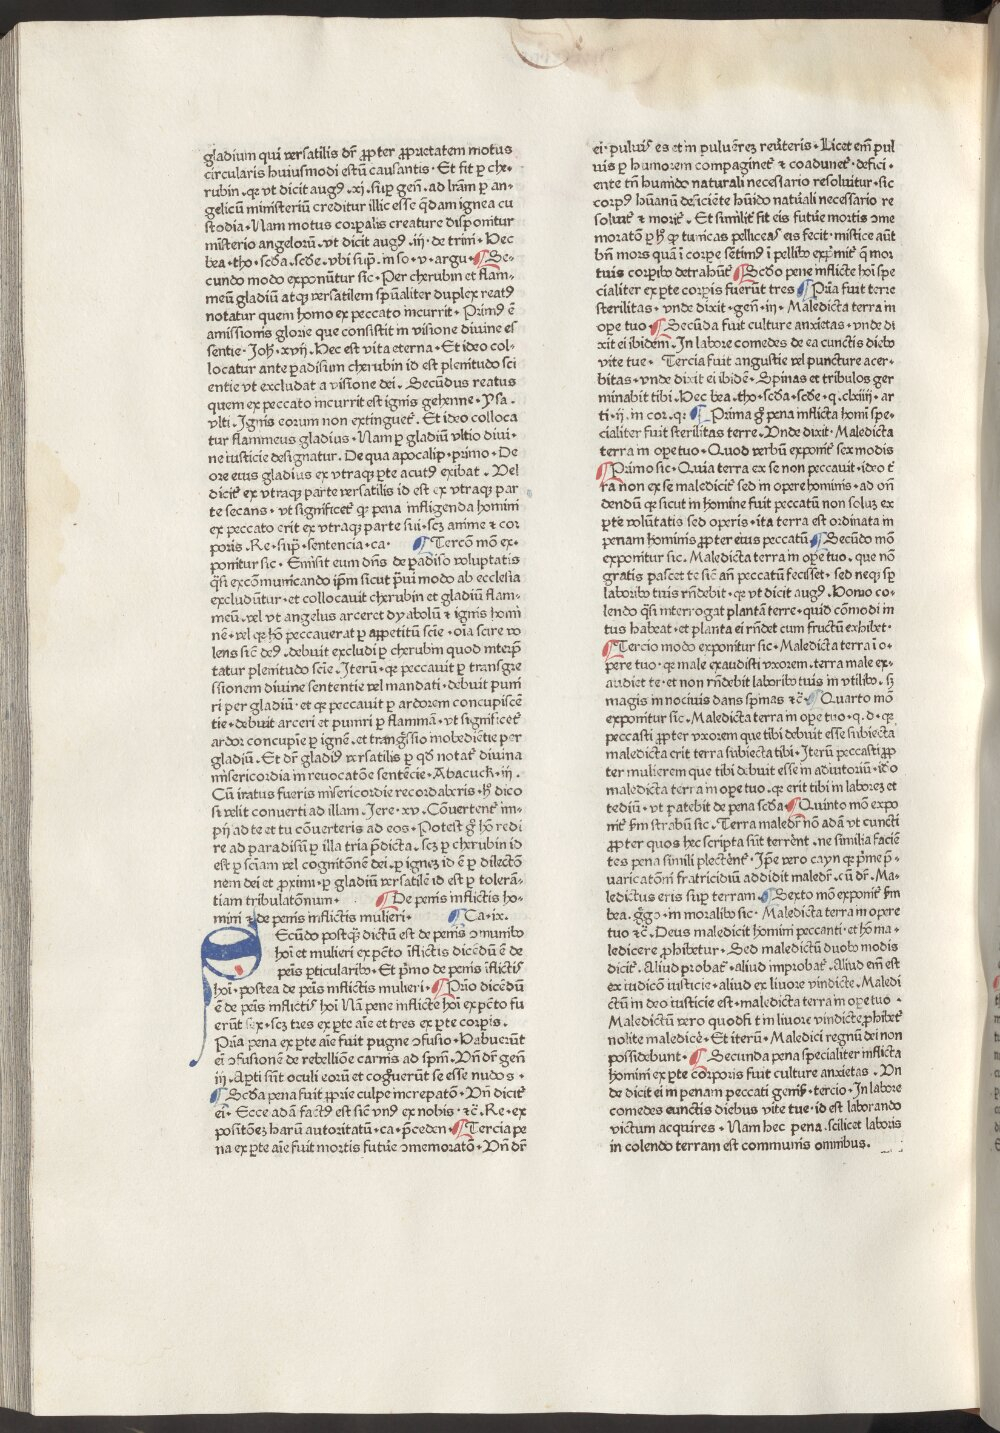 gladium qui versatilis dr̄ ꝓpter ꝓprietatem motus
circularis huiusmodi estū causantis · Et fit ꝑ che-
rubin · qꝛ vt dicit augꝰ · xj · suꝑ geñ · ad lr̄am ꝑ an-
gelicū ministeriū creditur illic esse q̄dam ignea cu
stodia · Nam motus corꝑalis creature disponitur
misterio angeloꝝ · vt dicit augꝰ · iij · de trini · Hec
bea · tho · scđa · scđe · vbi suꝑ · in so · v · argu · ¶ Se-
cundo modo exponūtur sic · Per cherubin et flam-
meū gladiū atqꝫ versatilem spūaliter duplex reatꝰ
notatur quem homo ex peccato incurrit · Primꝰ ē
amissionis glorie que consistit in visione diuine es
sentie · Joh̄ · xvij · Hec est vita eterna · Et ideo col-
locatur ante ꝑadisum cherubin id est plenitudo sci
entie vt excludat a visione dei · Secūdus reatus
quem ex peccato incurrit est ignis gehenne · Ysa ·
vlti · Ignis eorum non extinguet᷑ · Et ideo colloca
tur flammeus gladius · Nam ꝑ gladiū vltio diui-
ne iusticie designatur · De qua apocalip · primo · De
ore eius gladius ex vtraqꝫ ꝑte acutꝰ exibat · Vel
dicit᷑ ex vtraqꝫ parte versatilis id est ex vtraqꝫ par
te secans · vt significet᷑ qꝛ pena infligenda homini
ex peccato erit ex vtraqꝫ parte sui · scꝫ anime & cor
poris · Re · suꝑ · sentencia · ca · ¶ Tercō mō ex-
ponitur sic · Emisit eum dn̄s de ꝑadiso voluptatis
q̄si excōmunicando ip̄m sicut p̄ui modo ab ecclesia
excludūtur · et collocauit cherubin et gladiū flam-
meū · vel vt angelus arceret dyabolū & ignis homi
nē · vel qꝛ hō peccauerat ꝑ appetitū scīe · oīa scire vo
lens sic̄ deꝰ · debuit excludi ꝑ cherubin quod int̄ꝑ
tatur plenitudo scīe · Iterū · qꝛ peccauit ꝑ transgre
ssionem diuine sententie vel mandati · debuit puni
ri per gladiū · et qꝛ peccauit ꝑ ardorem concupiscē
tie · debuit arceri et puniri ꝑ flammā · vt significet᷑
ardor concupīe ꝑ ignē · et trangr̄ssio inobediētie per
gladiū · Et dr̄ gladiꝰ versatilis ꝑ qđ notat᷑ diuina
misericordia in reuocatōe sentēcie · Abacuck · iij ·
Cū iratus fueris misericordie recordaberis · h̄ dico
si velit conuerti ad illam · Jere · xv · Cōuertent᷑ im-
pij ad te et tu cōuerteris ad eos · Potest g̊ hō redi
re ad paradisū ꝑ illa tria p̄dicta · scꝫ ꝑ cherubin id
est ꝑ sciam vel cognitōnē dei · ꝑ ignez id ē ꝑ dilectō
nem dei et ꝓximi · ꝑ gladiū versatilē id est ꝑ tolerā-
tiam tribulatōnum · ¶ De penis inflictis ho-
mini & de penis inflictis mulieri · ¶ Ca · ix ·
Secūdo postqꝫ dictū est de penis ꝯmunibꝰ
hoi et mulieri ex pctō īflictis dicēdū ē de
peīs ꝑticularibꝰ · Et p̄mo de penis īflictis
hoī · postea de peīs inflictis mulieri · ¶ Primo dicēdū
ē de peīs inflictis hoī Nā pene inflicte hoī ex pctō fu
erūt sex · scꝫ tres ex ꝑte aīe et tres ex ꝑte corꝑis ·
Prīa pena ex ꝑte aīe fuit pugne ꝯfusio · Habuerūt
ei ꝯfusionē de rebelliōe carnis ad spm̄ · Vn̄ dr̄ gen̄
iij · Aꝑti sunt oculi eorū et cog̊uerūt se esse nudos ·
¶ Scđa pena fuit ꝓprie culpe increpatō · Vn̄ dicit᷑
ei · Ecce adā factꝰ est sic̄ vnꝰ ex nobis · &c̄ · Re · ex
positōez harū autoritatū · ca · p̄ceden · ¶ Tercia pe
na ex ꝑte aīe fuit mortis future ꝯmemoratō · Vn̄ dr̄
ei · puluis es et in puluerez reūteris · Licet em̄ pul
uis ꝑ humorem compaginet᷑ & coadunet᷑ · defici-
ente tn̄ humido naturali necessario resoluitur · sic
corpꝰ hūanū deficiēte hūido natūali necessario re
soluit᷑ & morit᷑ · Et similit᷑ fit eis future mortis ꝯme
moratō ꝑ h̄ qꝛ tunicas pelliceas eis fecit · mistice aūt
bn̄ mors quā ī corpe setimꝰ ī pellibꝰ exp̄mit᷑ q̄ mor
tuis corꝑibꝰ detrahūt᷑ ¶ Scđo pene inflicte hoī spe
cialiter ex ꝑte corꝑis fuerūt tres ¶ Prīa fuit terre
sterilitas · vnde dixit · gen̄ · iij · Maledicta terra in
oꝑe tuo · ¶ Secūda fuit culture anxietas · vnde di
xit ei ibidem · In labore comedes de ea cunctis diebꝰ
vite tue · Tercia fuit angustie vel puncture acer-
bitas · vnde dixit ei ibidē · Spinas et tribulos ger
minabit tibi · Hec bea · tho · scđa · scđe · q · clxiiij · ar
ti · ij · in cor · q · ¶ Prima g̊ pena inflicta homi spe-
cialiter fuit sterilitas terre · Vnde dixit · Maledicta
terra in oꝑe tuo · Quod verbū exponit᷑ sex modis
¶ Primo sic · Quia terra ex se non peccauit · ideo t̄
ra non ex se maledicit᷑ sed in opere hominis · ad on̄
dendū qꝛ sicut in homine fuit peccatū non soluz ex
ꝑte volūtatis sed operis · ita terra est ordinata in
penam hominis ꝓpter eius peccatū ¶ Secūdo mō
exponitur sic · Maledicta terra in oꝑe tuo · que nō
gratis pascet te sic̄ an̄ peccatū fecisset · sed neqꝫ sꝑ
laboribꝰ tuis rn̄debit · qꝛ vt dicit augꝰ · Homo co-
lendo q̄si interrogat plantā terre · quid cōmodi in
tus habeat · et planta ei rn̄det cum fructū exhibet ·
¶ Tercio modo exponitur sic · Maledicta terra ī o-
pere tuo · qꝛ male exaudisti vxorem · terra male ex-
audiet te · et non rn̄debit laboribꝰ tuis in vtilibꝰ · sꝫ
magis in nociuis dans spinas &c̄ · ¶ Quarto mō
exponitur sic · Maledicta terra in oꝑe tuo · q · d · qꝛ
peccasti ꝓpter vxorem que tibi debuit esse subiecta
maledicta erit terra subiecta tibi · Iterū peccasti ꝓp
ter mulierem que tibi debuit esse in adiutoriū · id̄o
maledicta terra in oꝑe tuo · qꝛ erit tibi in laborez et
tediū · vt patebit de pena scđa · ¶ Quinto mō expo
nit᷑ fm̄ strabū sic · Terra maledr̄ nō adā vt cuncti
ꝓpter quos hec scripta sūt terrēnt᷑ · ne similia faciē
tes pena simili plectēnt᷑ · Ip̄e vero cayn qꝛ p̄me p̄-
uaricatōni fratricidiū addidit maledr̄ · cū dr̄ · Ma-
ledictus eris suꝑ terram · ¶ Sexto mō exponit᷑ fm̄
bea · g̊go · in moralibꝰ sic · Maledicta terra in opere
tuo &c̄ · Deus maledicit homini peccanti · et hō ma-
ledicere ꝓhibetur · Sed maledictū duobꝰ modis
dicit᷑ · Aliud probat᷑ · aliud improbat᷑ · Aliud em̄ est
ex iudicō iusticie · aliud ex liuore vindicte · Maledi
ctū in deo iusticie est · maledicta terra in oꝑe tuo ·
Maledictū vero quod fit in liuore vindicte ꝓhibet᷑
nolite maledicē · Et iterū · Maledici regnū dei non
possidebunt · ¶ Secunda pena specialiter inflicta
homini ex ꝑte corporis fuit culture anxietas · Vn
de dicit ei in penam peccati gen̄ · tercio · In labore
comedes cunctis diebus vite tue · id est laborando
victum acquires · Nam hec pena · scilicet laboris
in colendo terram est communis omnibus ·